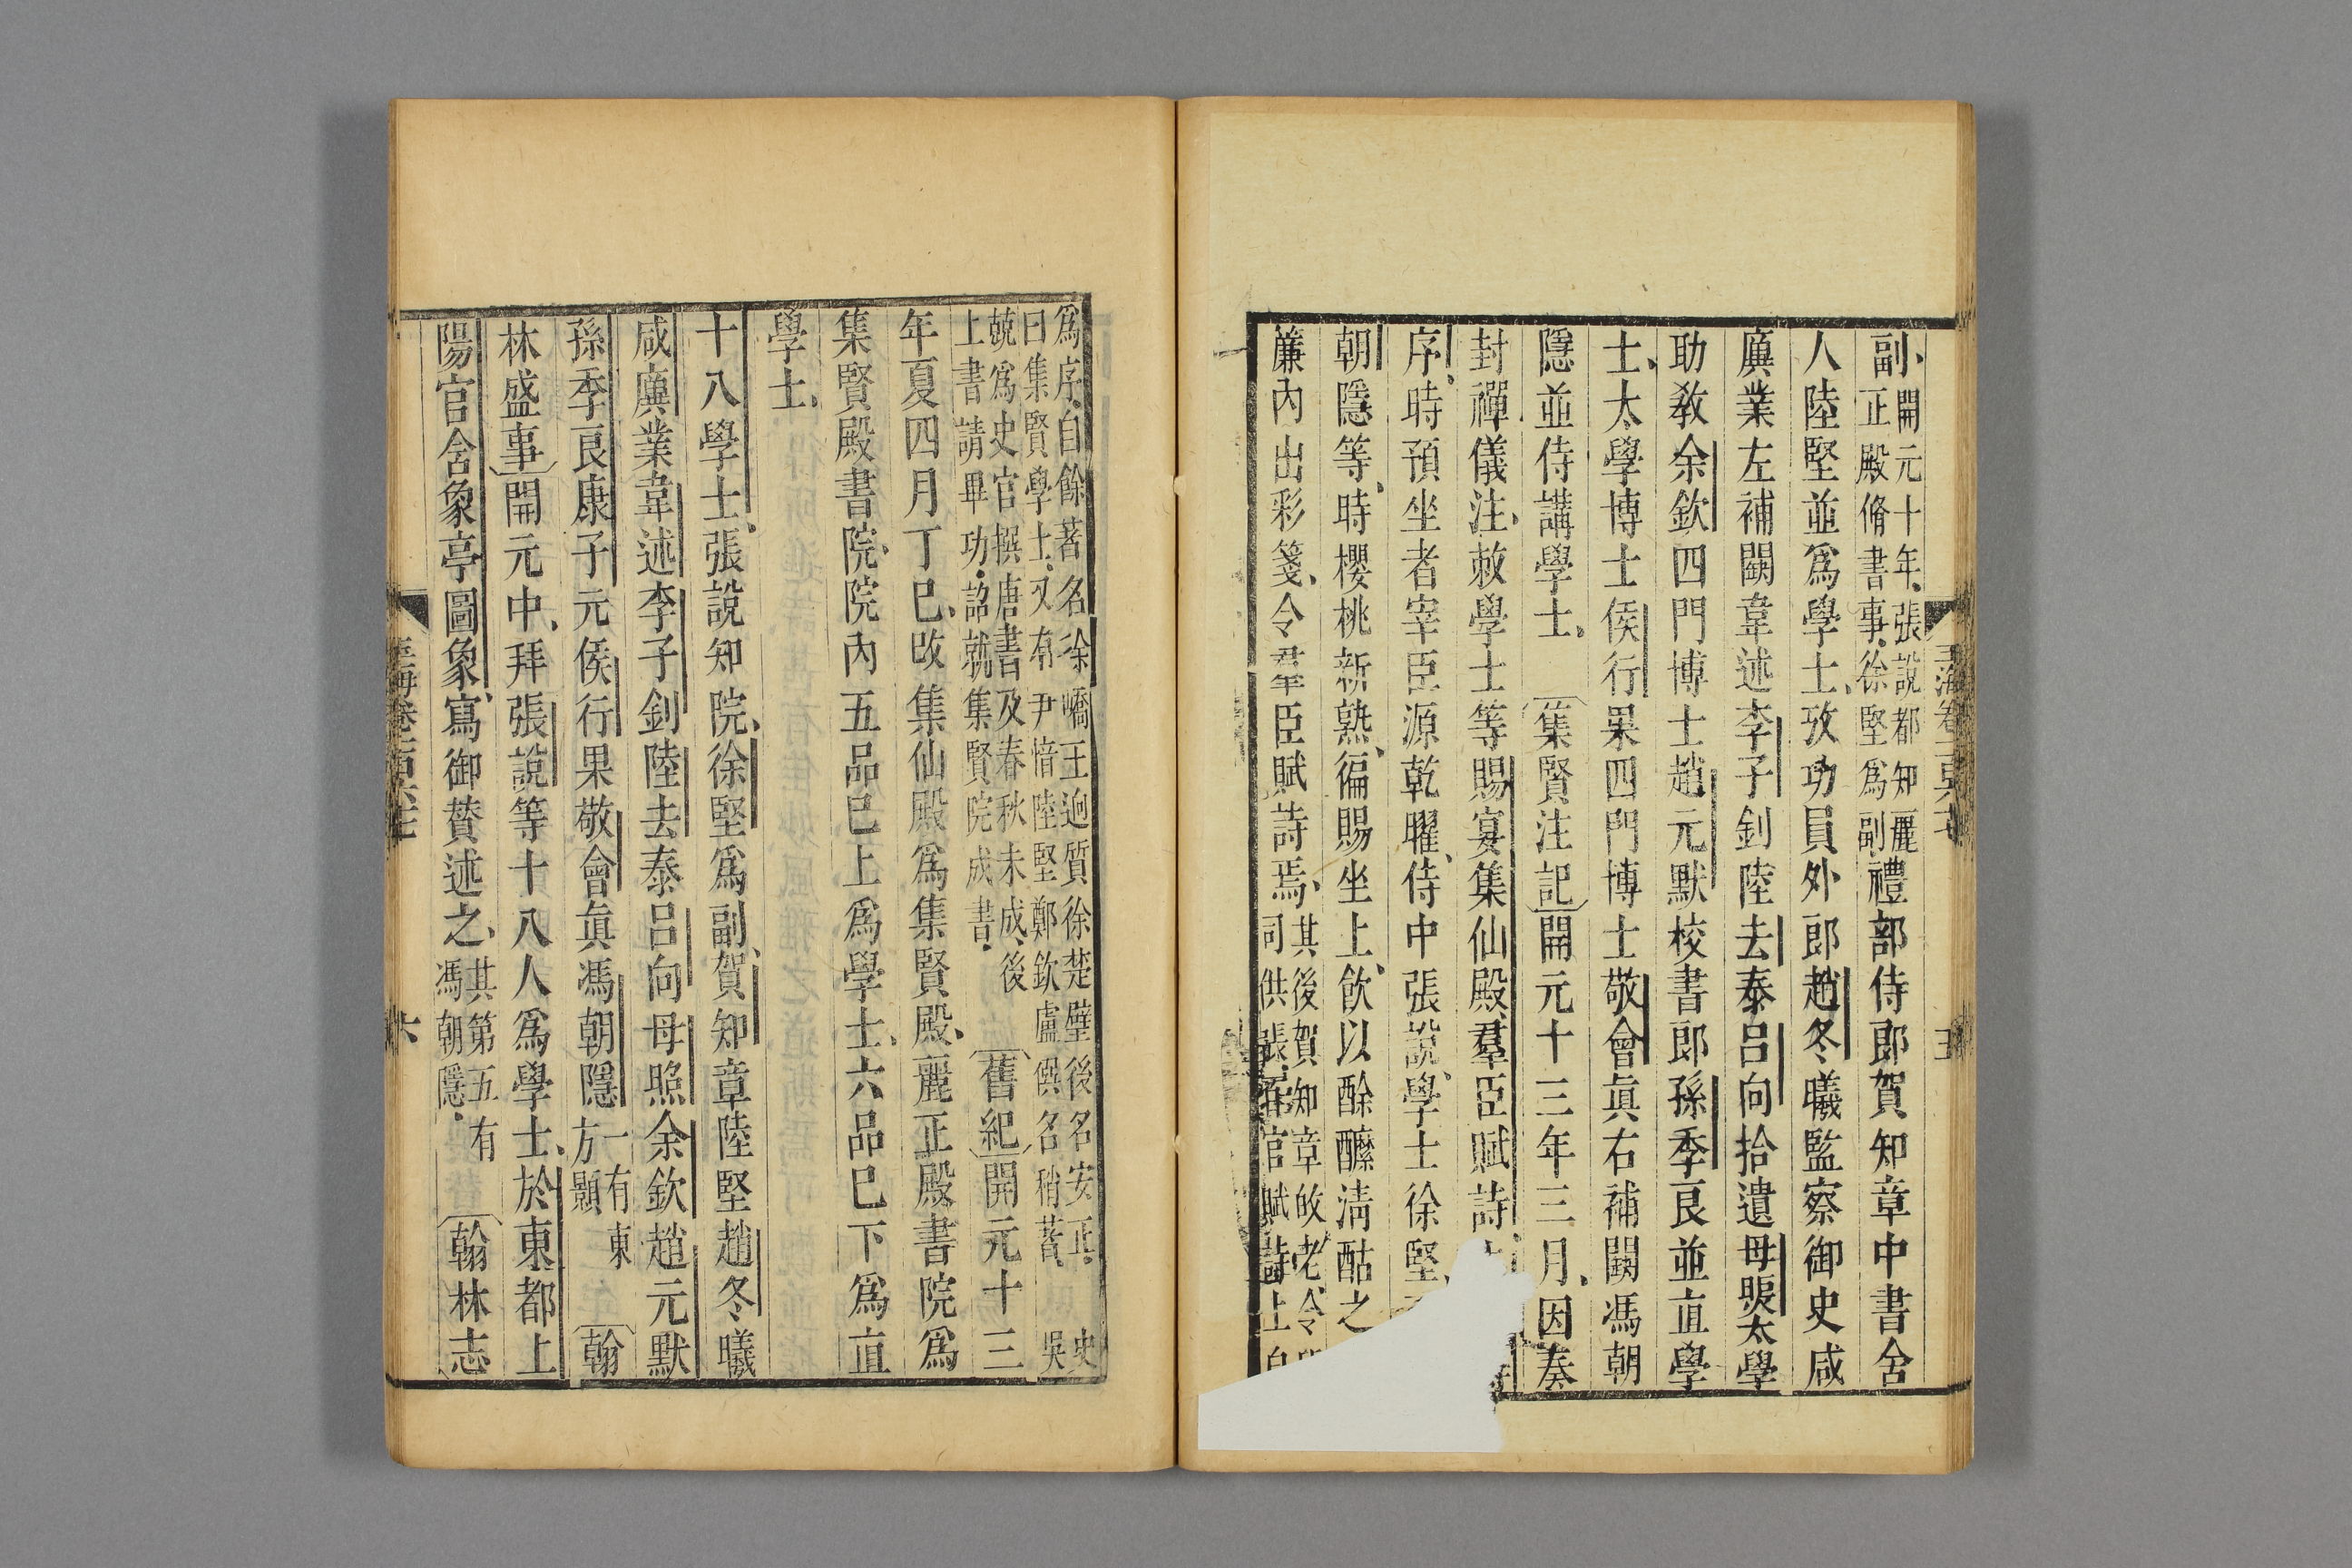 玉海卷一百六十七
五
副開元十年張說都知麗
正殿脩書事徐堅爲副禮部侍郎賀知章中書舍
人陸堅並爲學士攷功員外郎趙冬曦監察御史咸
廙業左補闕韋述李子釗陸去泰呂向拾遺毋煚太學
助教余欽四門博士趙元默校書郎孫季良並直學
士太學博士侯行果四門博士敬會眞右補闕馮朝
隱並侍講學士 集賢注記開元十三年三月因奏
封禪儀注敕學士等賜宴集仙殿羣臣賦詩
序時預坐者宰臣源乾曜侍中張說學士徐堅
朝隱等時櫻桃新熟徧賜坐上飲以酴醾淸酤之
簾內出彩箋令羣臣賦詩焉其後賀知章敀老令
同供張百官賦詩上自
爲序自餘著名徐嶠王迥質徐楚璧後名安正 史
曰集賢學士又有尹愔陸堅鄭欽盧僎名稍著 吳
兢爲史官撰唐書及春秋未成後
上書請畢功詔就集賢院成書 舊紀開元十三
年夏四月丁巳改集仙殿爲集賢殿麗正殿書院爲
集賢殿書院院內五品已上爲學士六品已下爲直
學士
十八學士張說知院徐堅爲副賀知章陸堅趙冬曦
咸廙業韋述李子釗陸去泰呂向毋煚余欽趙元默
孫季良康子元侯行果敬會眞馮朝隱一有東
方顥 翰
林盛事開元中拜張說等十八人爲學士於東都上
陽官舍象亭圖象寫御贊述之其第五有
馮朝隱 翰林志
玉海卷一百六十七
六